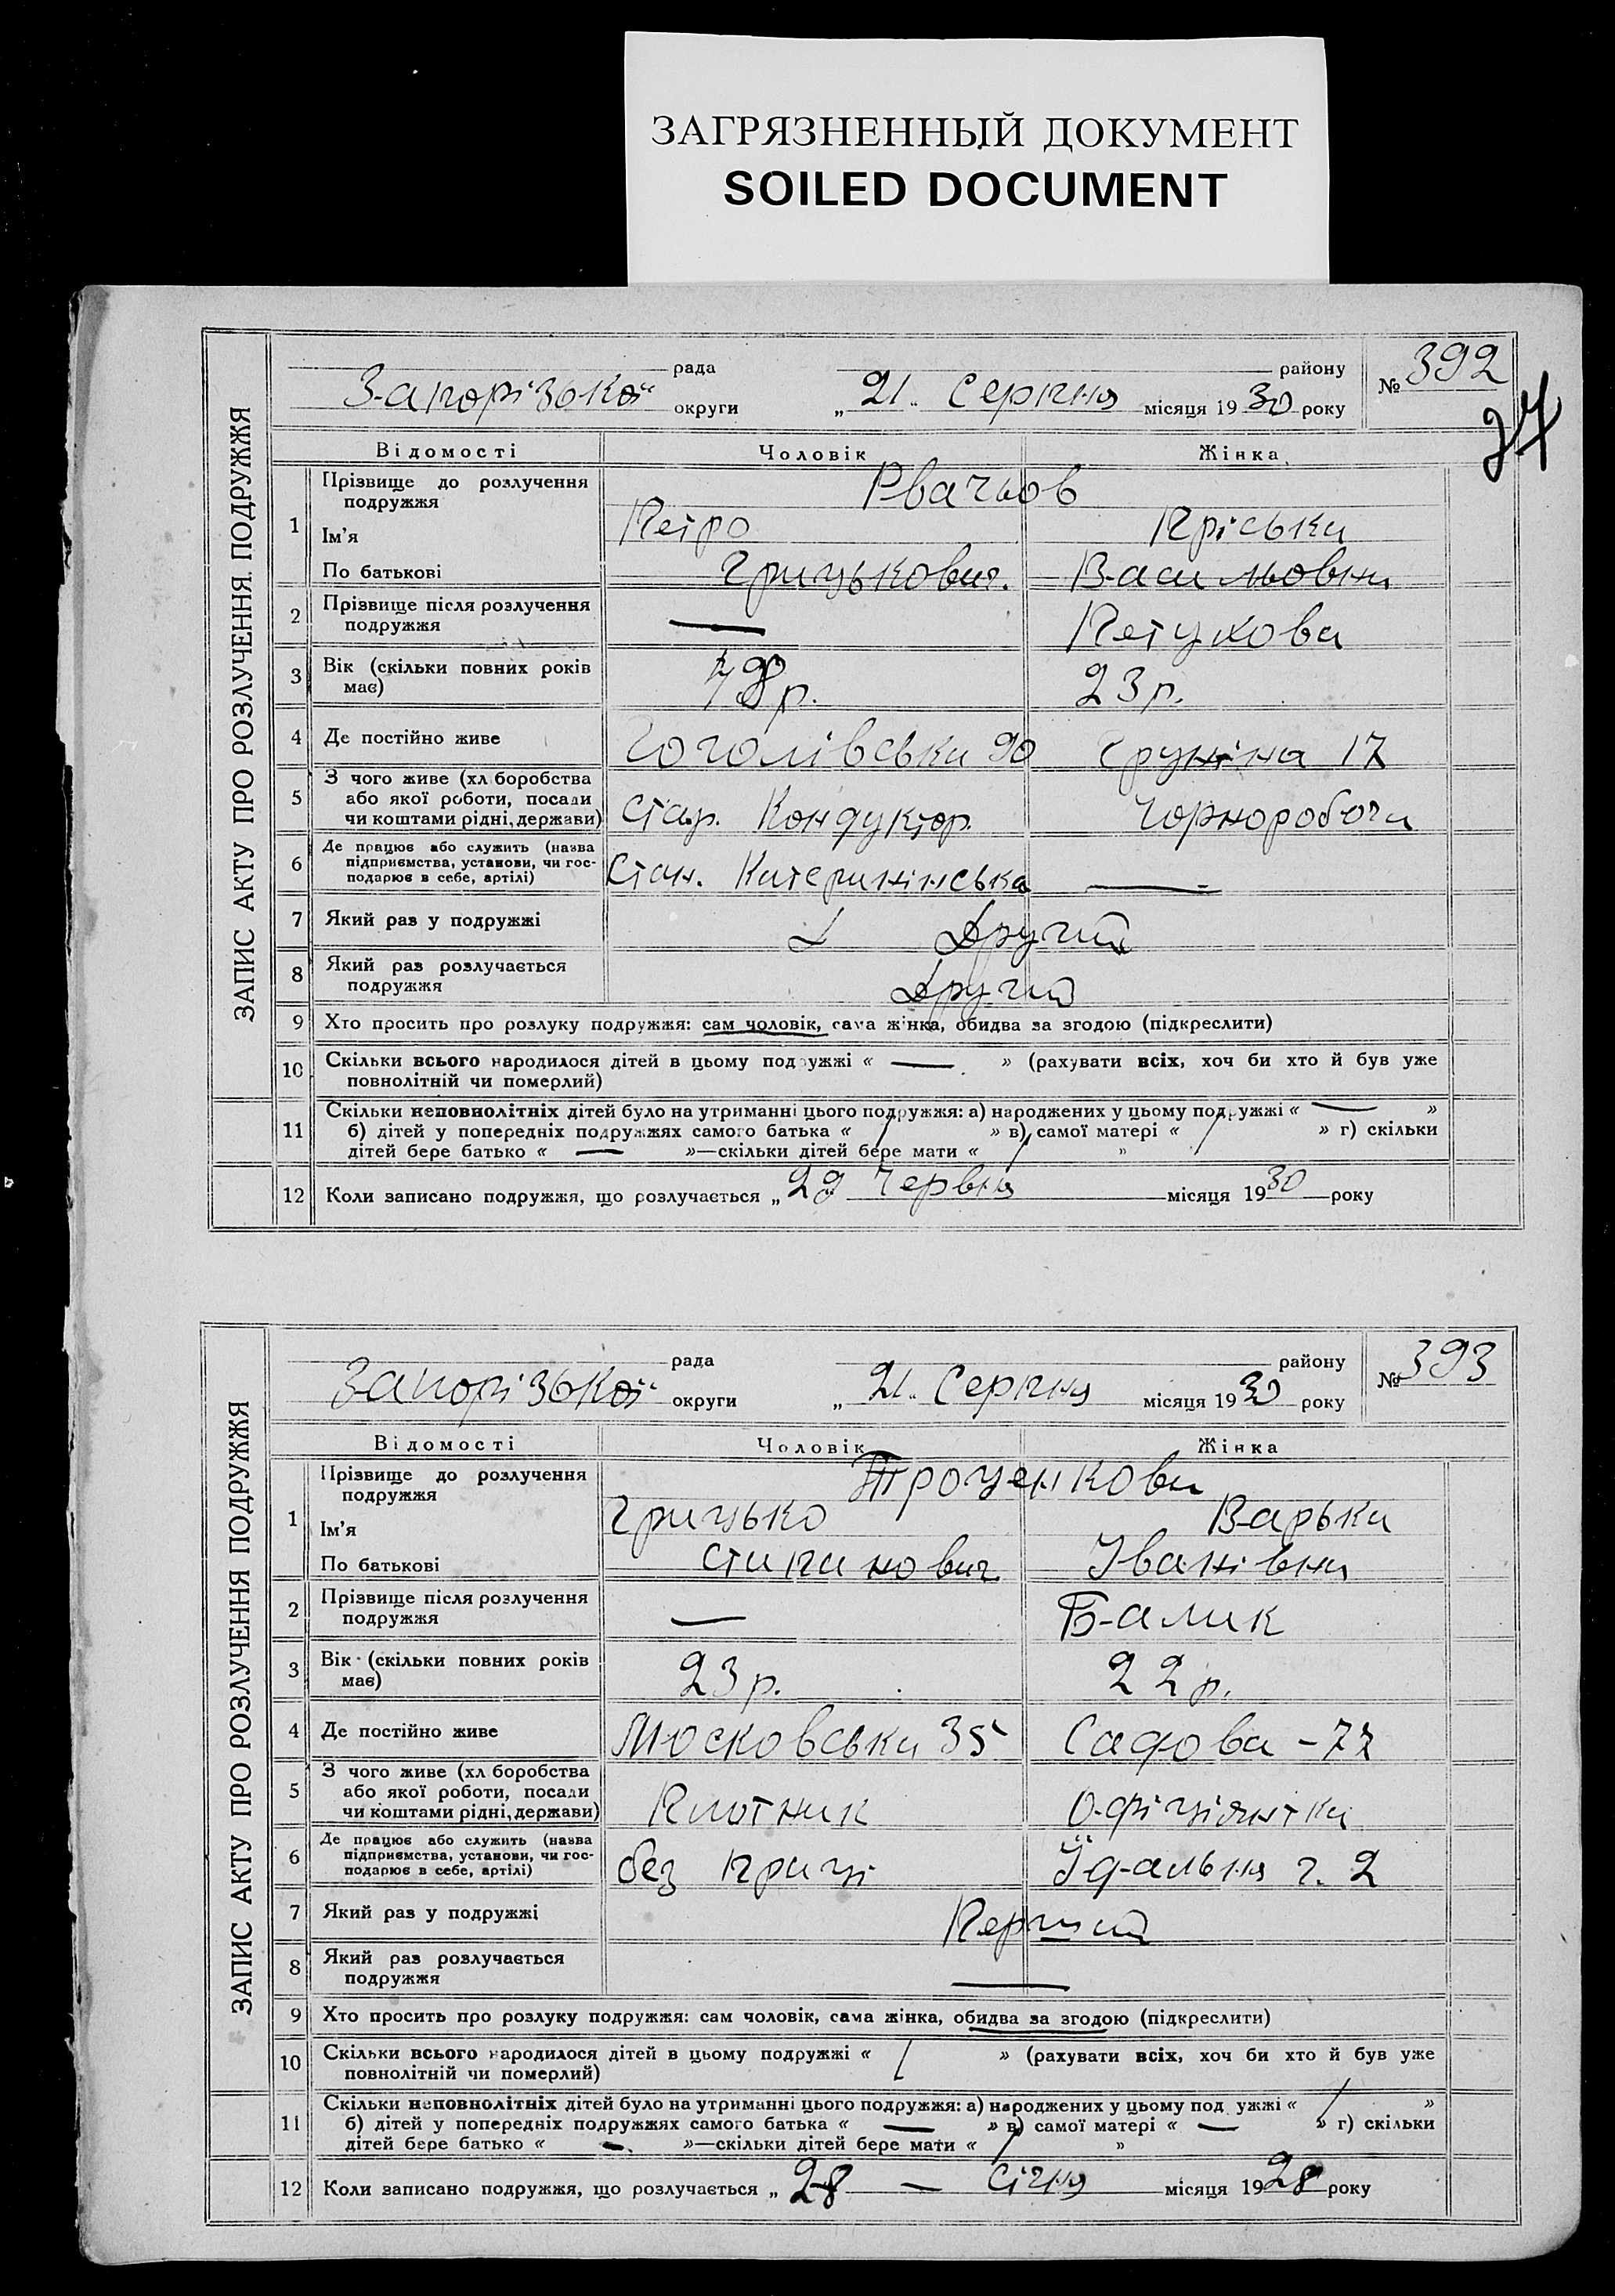 ЗАГРЯЗНЕННЫЙ ДОКУМЕНТ
SOILED DOCUMENT
ЗАПИС АКТУ ПРО РОЗЛУЧЕННЯ ПОДРУЖЖЯ
рада району
Запорізької округи „21. Серпня місяця 1930 року № 392
27
Відомості Чоловік Жінка
1 Прізвище до розлучення подружжя Рвачьов
Ім'я Петро Пріська
По батькові Грицькович. Васильовна
2 Прізвище після розлучення подружжя — Петухова
3 Вік (скільки повних років має) р. 23 р.
4 Де постійно живе Гоголівська 90 17
5 З чого живе (хліборобства
або якої роботи, посади
чи коштами рідні, держави) Стар. Кондуктор. Чорноробоча
6 Де працює або служить (назва
підприємства, установи, чи гос-
подарює в себе, артілі) Стан. Катеринінська —
7 Який раз у подружжі Другий
8 Який раз розлучається
подружжя Другий
9 Хто просить про розлуку подружжя: сам чоловік, сама жінка, обидва за згодою (підкреслити)
10 Скільки всього народилося дітей в цьому подружжі « — » (рахувати всіх, хоч би хто й був уже
повнолітній чи померлий)
11 Скільки неповнолітніх дітей було на утриманні цього подружжя: а) народжених у цьому подружжі « — »
б) дітей у попередніх подружжях самого батька « / » в) самої матері « / » г) скільки
дітей бере батько « — »—скільки дітей бере мати « / »
12 Коли записано подружжя, що розлучається „29 Червня місяця 1930 року
ЗАПИС АКТУ ПРО РОЗЛУЧЕННЯ ПОДРУЖЖЯ
рада району
Запорізької округи „21. Серпня місяця 1930 року № 393
Відомості Чоловік Жінка
1 Прізвище до розлучення подружжя Троценкови
Ім'я Грицько Варька
По батькові Стапанович Іванівна
2 Прізвище після розлучення подружжя — Балик
3 Вік (скільки повних років має) 23 р. 22 р.
4 Де постійно живе Московська 35 Садова - 77
5 З чого живе (хліборобства
або якої роботи, посади
чи коштами рідні, держави) Плотник Офіціянтка
6 Де працює або служить (назва
підприємства, установи, чи гос-
подарює в себе, артілі) без праці Їдальня ч. 2
7 Який раз у подружжі Перший
8 Який раз розлучається
подружжя —
9 Хто просить про розлуку подружжя: сам чоловік, сама жінка, обидва за згодою (підкреслити)
10 Скільки всього народилося дітей в цьому подружжі « / » (рахувати всіх, хоч би хто й був уже
повнолітній чи померлий)
11 Скільки неповнолітніх дітей було на утриманні цього подружжя: а) народжених у цьому подружжі « / »
б) дітей у попередніх подружжях самого батька « — » в) самої матері « — » г) скільки
дітей бере батько « — »—скільки дітей бере мати « / »
12 Коли записано подружжя, що розлучається „28 — Січня місяця 1928 року